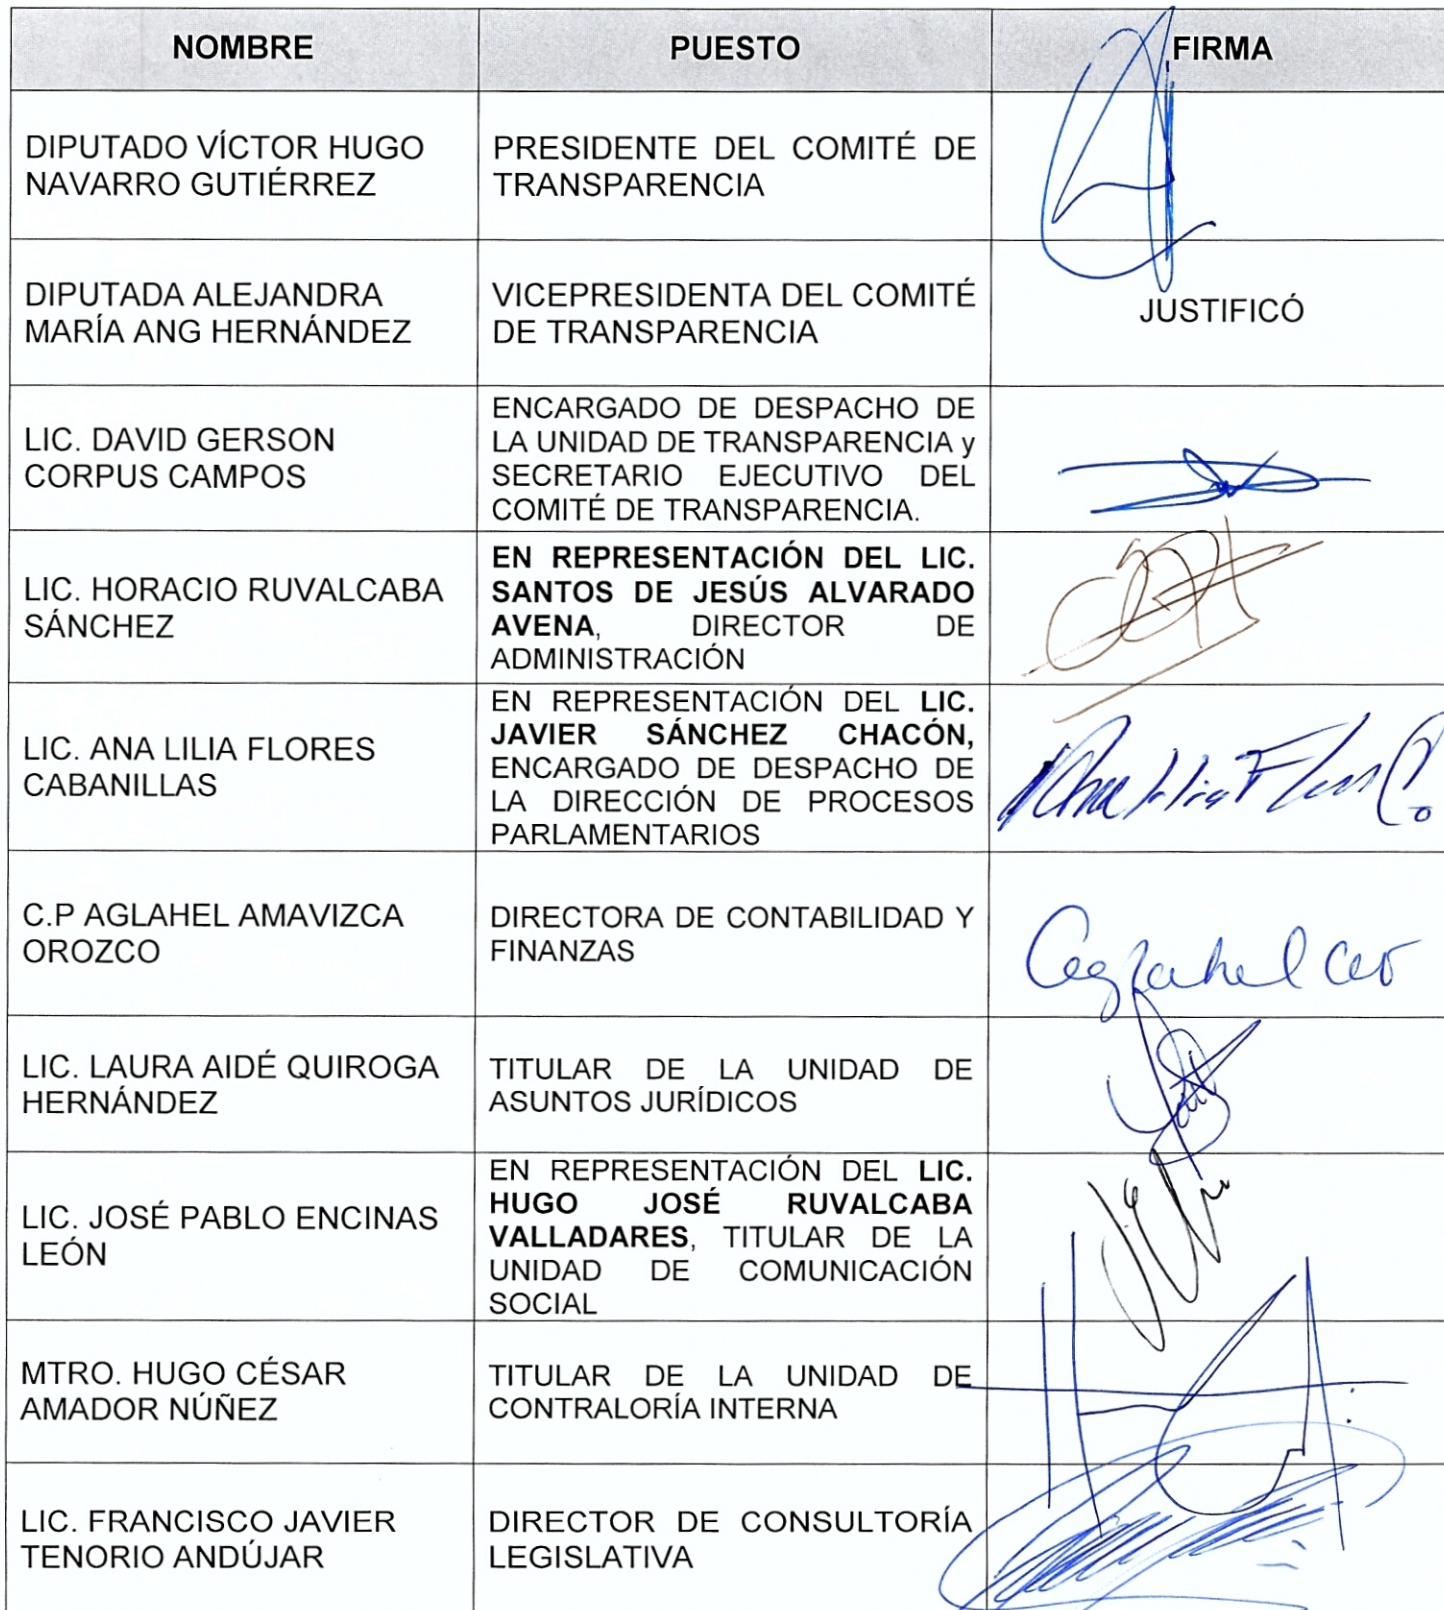 NOMBRE PUESTO FIRMA
DIPUTADO VÍCTOR HUGO
NAVARRO GUTIÉRREZ
PRESIDENTE DEL COMITÉ DE
TRANSPARENCIA
DIPUTADA ALEJANDRA
MARÍA ANG HERNÁNDEZ
VICEPRESIDENTA DEL COMITÉ
DE TRANSPARENCIA
JUSTIFICÓ
LIC. DAVID GERSON
CORPUS CAMPOS
ENCARGADO DE DESPACHO DE
LA UNIDAD DE TRANSPARENCIA y
SECRETARIO EJECUTIVO DEL
COMITÉ DE TRANSPARENCIA.
LIC. HORACIO RUVALCABA
SÁNCHEZ
EN REPRESENTACIÓN DEL LIC.
SANTOS DE JESÚS ALVARADO
AVENA, DIRECTOR DE
ADMINISTRACIÓN
LIC. ANA LILIA FLORES
CABANILLAS
EN REPRESENTACIÓN DEL LIC.
JAVIER SÁNCHEZ CHACÓN,
ENCARGADO DE DESPACHO DE
LA DIRECCIÓN DE PROCESOS
PARLAMENTARIOS
C.P AGLAHEL AMAVIZCA
OROZCO
DIRECTORA DE CONTABILIDAD Y
FINANZAS
LIC. LAURA AIDÉ QUIROGA
HERNÁNDEZ
TITULAR DE LA UNIDAD DE
ASUNTOS JURÍDICOS
LIC. JOSÉ PABLO ENCINAS
LEÓN
EN REPRESENTACIÓN DEL LIC.
HUGO JOSÉ RUVALCABA
VALLADARES, TITULAR DE LA
UNIDAD DE COMUNICACIÓN
SOCIAL
MTRO. HUGO CÉSAR
AMADOR NÚÑEZ
TITULAR DE LA UNIDAD DE
CONTRALORÍA INTERNA
LIC. FRANCISCO JAVIER
TENORIO ANDÚJAR
DIRECTOR DE CONSULTORÍA
LEGISLATIVA